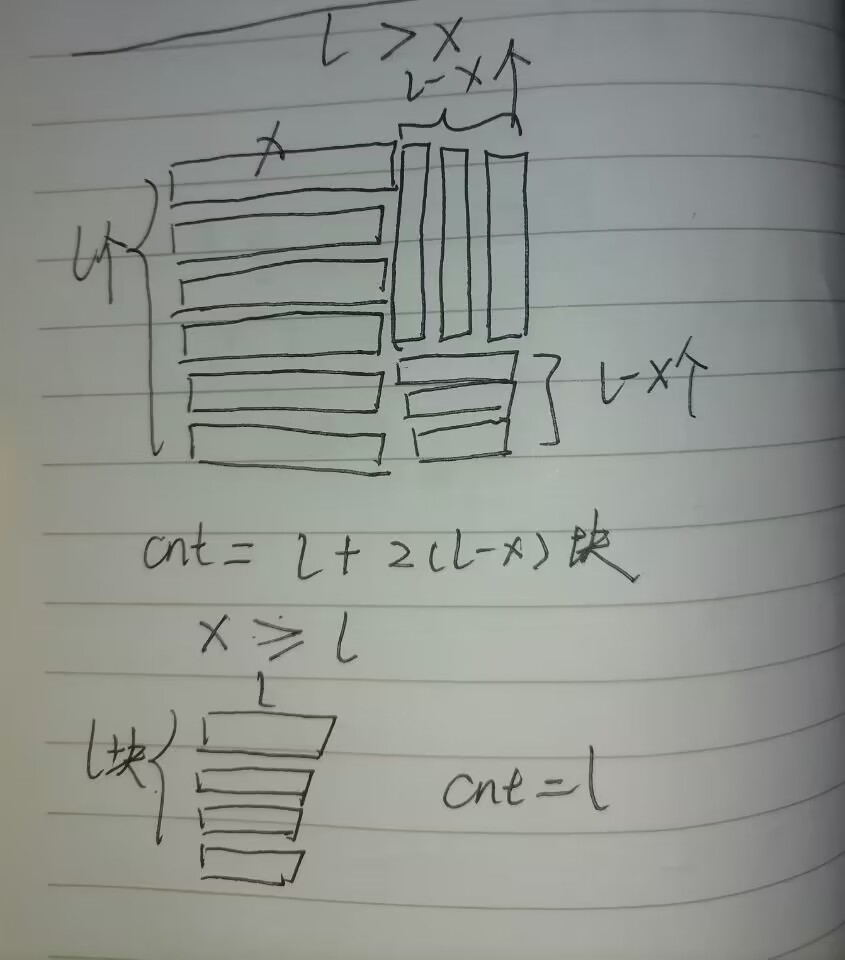 l > x
l-x个
x
l个
l-x个
cnt = l + 2(l-x) 块
x ≥ l
l
l块
cnt = l